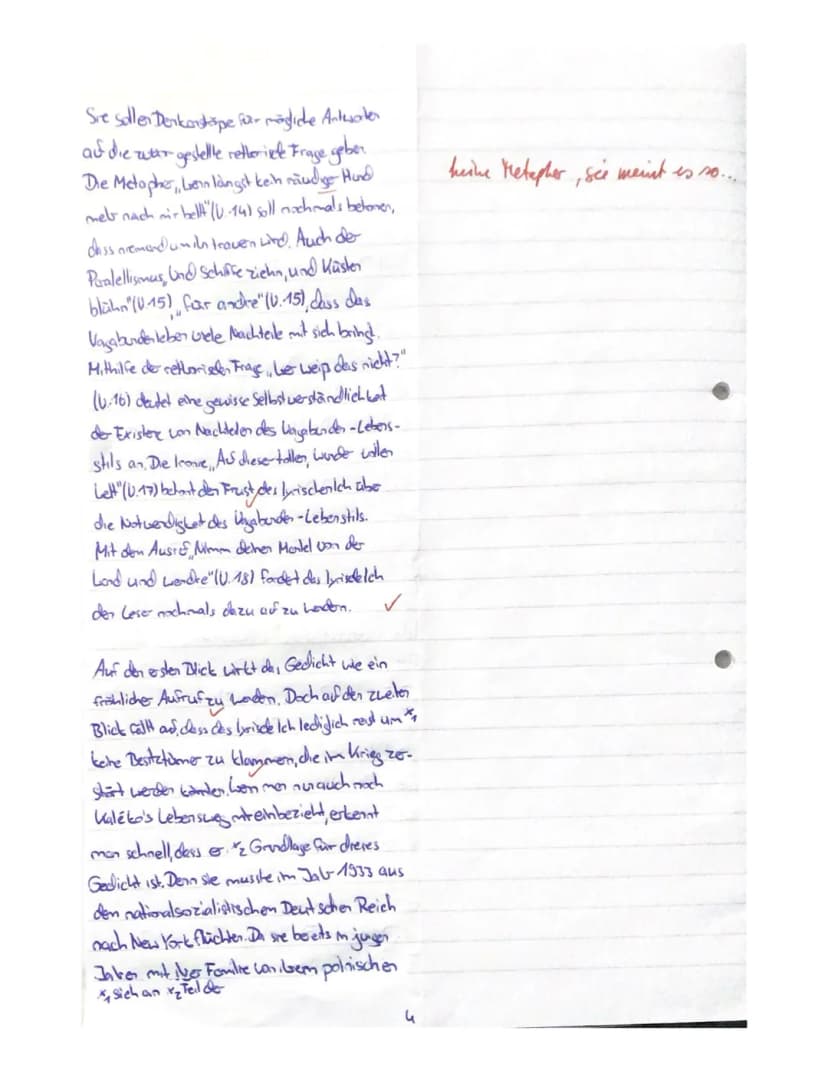 Sie sollen Denkanstöße für mögliche Antworten
auf die zuvor gestellte rethorische Frage geben.
Die Metapher „Wenn längst kein räudiger Hund
mehr nach mir bellt" (V.14) soll nochmals betonen,
dass niemand um ihn trauern wird. Auch der
Paralellismus „Und Schiffe ziehn, und Küsten
blühn" (V.15) „für andre" (V.15), dass das
Vagabundenleben viele Nachteile mit sich bringt.
Mithilfe der rethorischen Frage „Wer weiß das nicht?"
(V.16) deutet eine gewisse Selbstverständlichkeit
der Existenz von Nachteilen des Vagabunden-Lebens-
stils an. Die Ironie „Auf dieser tollen, wunder vollen
Welt" (V.17) betont den Frust des lyrischen Ich über
die Notwendigkeit des Vagabunden-Lebenstils.
Mit dem Ausruf „Nimm deinen Mantel von der
Wand und wandre" (V.18) fordet das lyrische Ich
den Leser nochmals dazu auf zu wandern. ✓
keine Metapher, sie meint es so...
Auf den ersten Blick wirkt das Gedicht wie ein
fröhlicher Aufruf zu wandern. Doch auf den zweiten
Blick fällt auf, dass das lyrische Ich lediglich reist um *1
keine Besitztümer zu klammern, die im Krieg zer-
stört werden könnten. Wenn man nun auch noch
Kaléko's Lebensweg miteinbezieht, erkennt
man schnell, dass er *2 Grundlage für dieses
Gedicht ist. Denn sie musste im Jahr 1933 aus
dem nationalsozialistischen Deutschen Reich
nach New York flüchten. Da sie bereits in jungen
Jahren mit ihrer Familie von ihrem polnischen
*1 sich an *2 Teil der
4